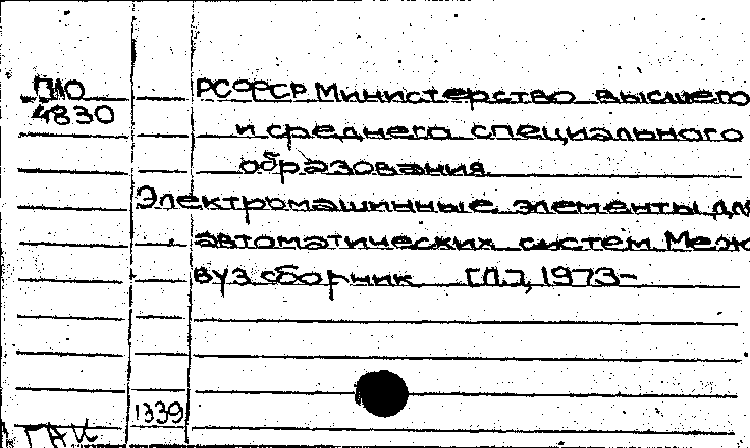 П10 РСФСР Министерство высшего
4830 и среднего специального
образования.
Электромашинные элементы дл
автоматических систем Меж
вуз сборник [Л.], 1973-
1339
ГАК